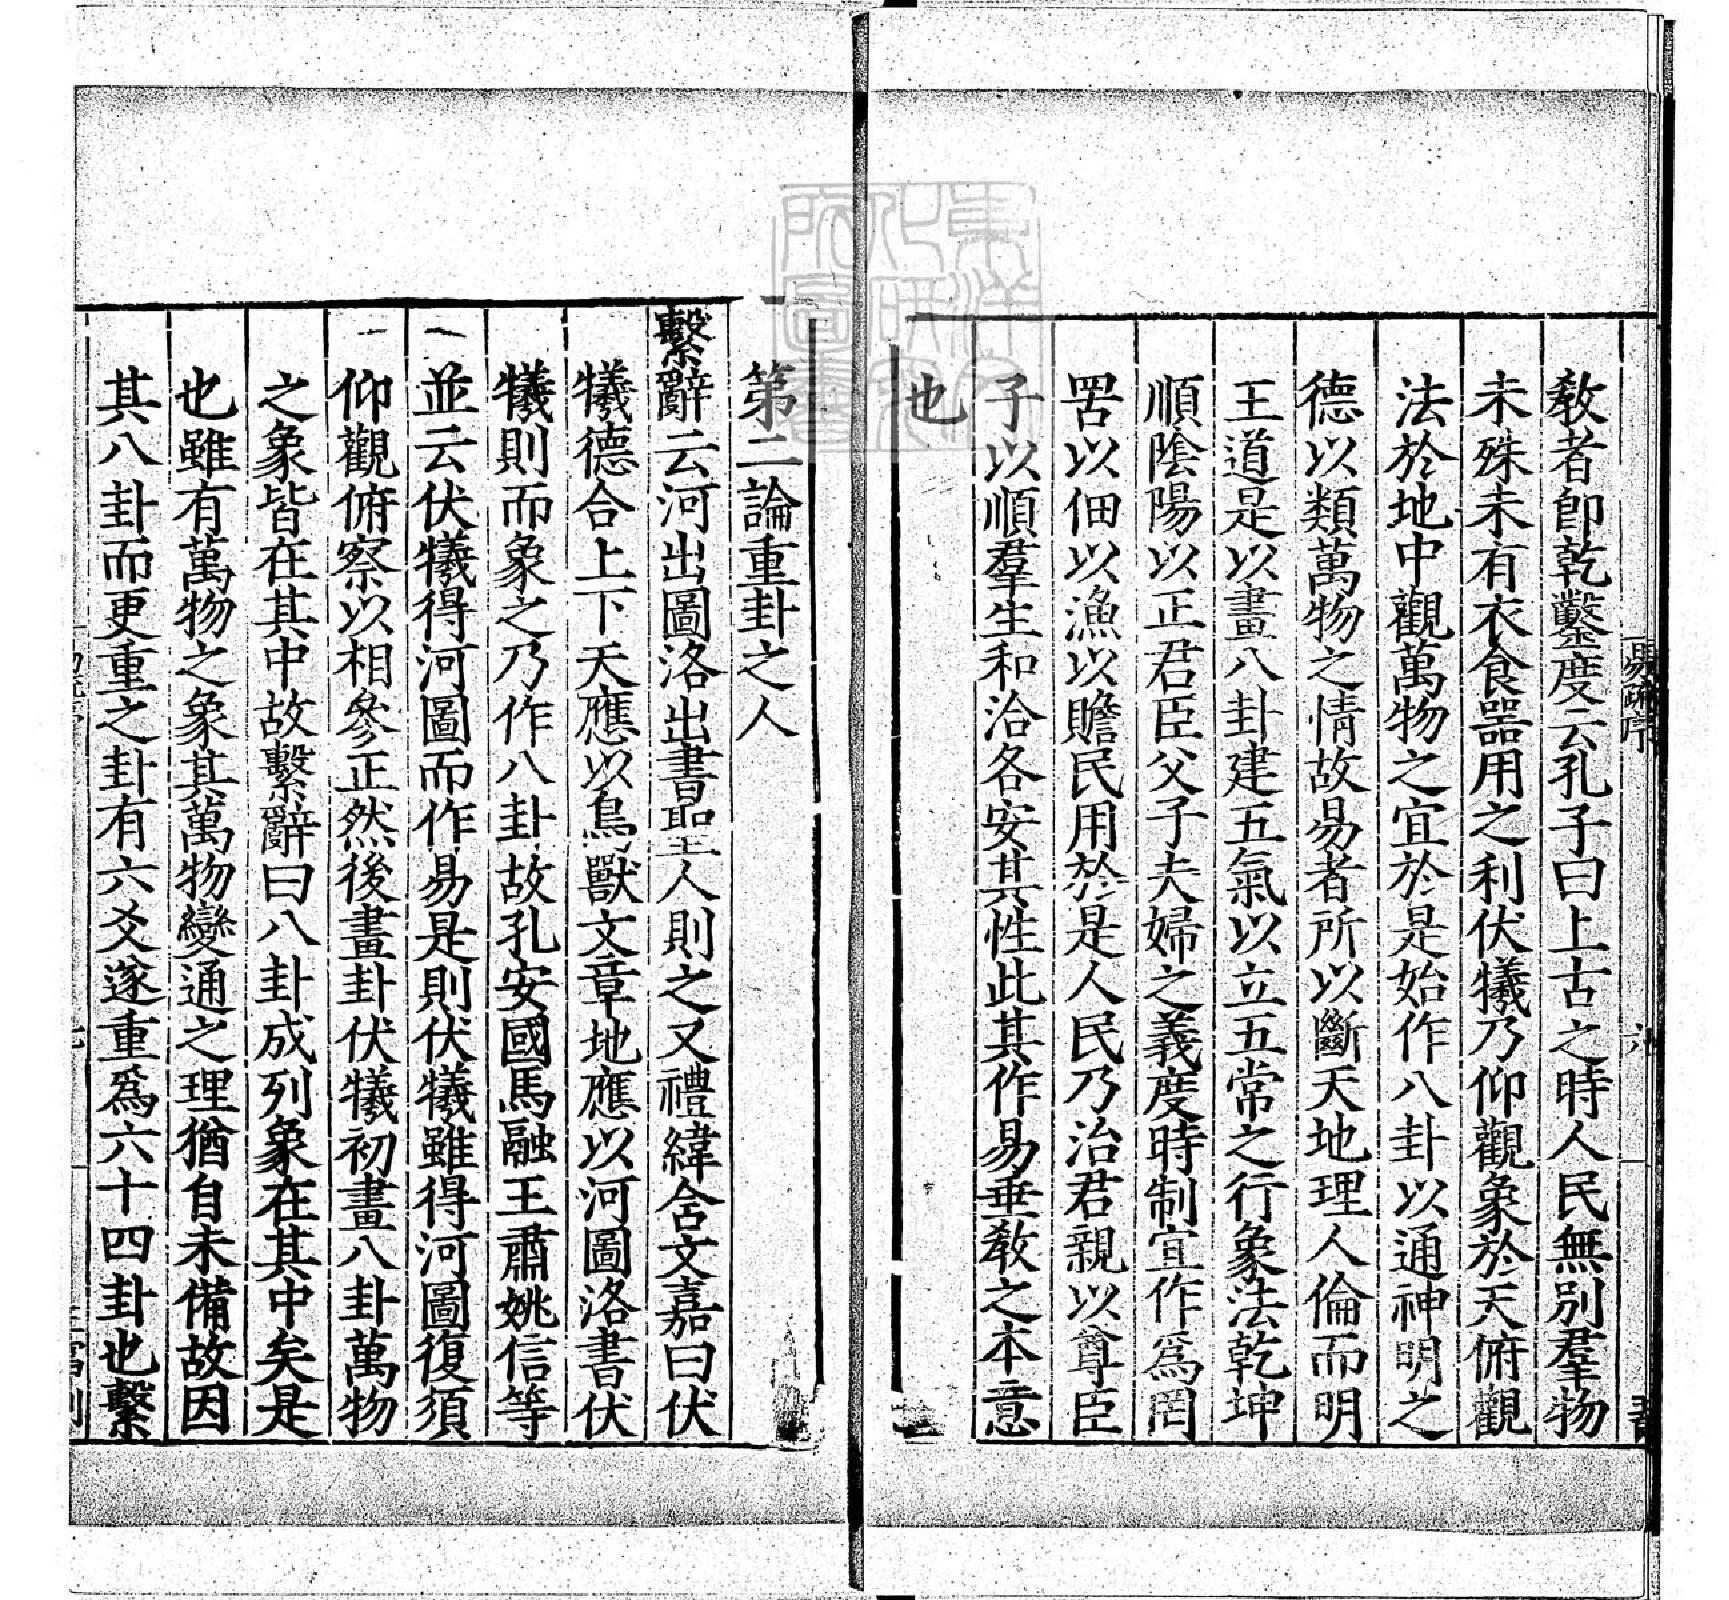 易疏序
六
敎者即乾鑿度云孔子曰上古之時人民無別羣物
未殊未有衣食器用之利伏犧乃仰觀象於天俯觀
法於地中觀萬物之宜於是始作八卦以通神明之
德以類萬物之情故易者所以斷天地理人倫而明
王道是以畫八卦建五氣以立五常之行象法乾坤
順陰陽以正君臣父子夫婦之義度時制宜作爲罔
罟以佃以漁以贍民用於是人民乃治君親以尊臣
子以順羣生和洽各安其性此其作易垂敎之本意
也
第二論重卦之人
繫辭云河出圖洛出書聖人則之又禮緯含文嘉曰伏
犧德合上下天應以鳥獸文章地應以河圖洛書伏
犧則而象之乃作八卦故孔安國馬融王肅姚信等
並云伏犧得河圖而作易是則伏犧雖得河圖復須
仰觀俯察以相參正然後畫卦伏犧初畫八卦萬物
之象皆在其中故繫辭曰八卦成列象在其中矣是
也雖有萬物之象其萬物變通之理猶自未備故因
其八卦而更重之卦有六爻遂重爲六十四卦也繫